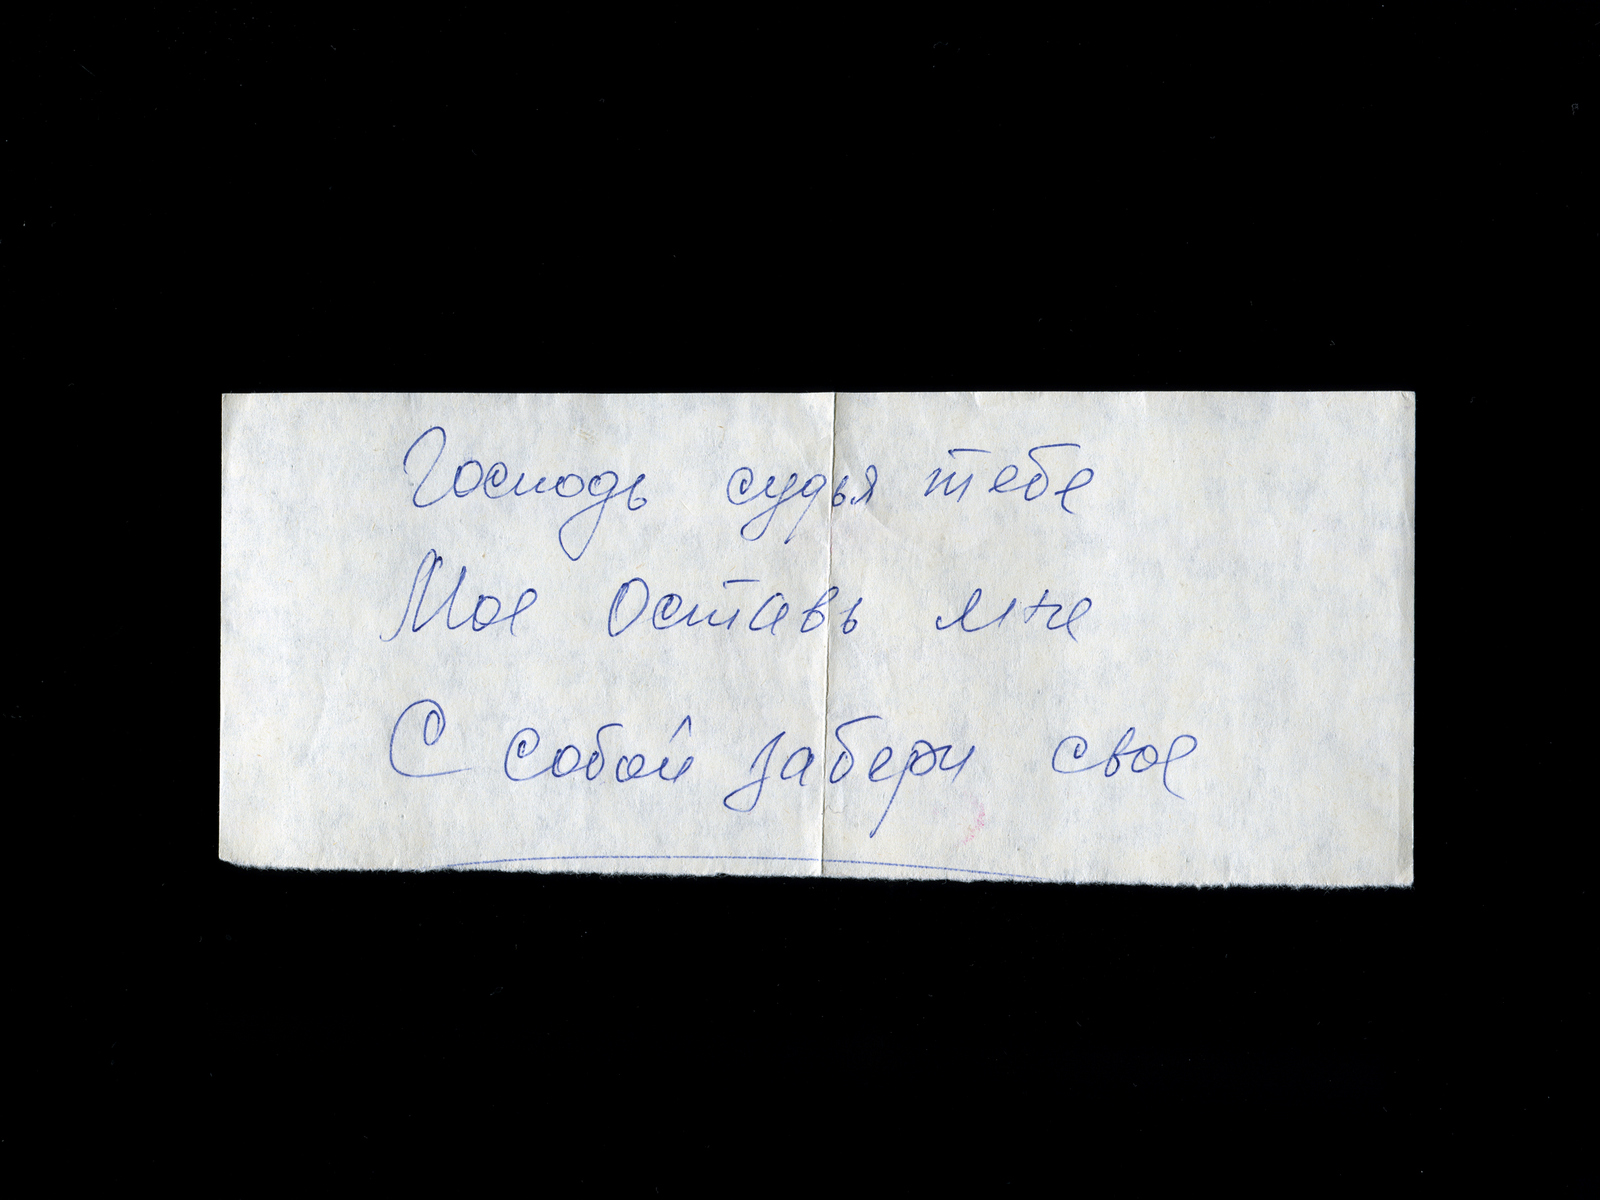 Господь судья тебе
Мое оставь мне
С собой забери свое